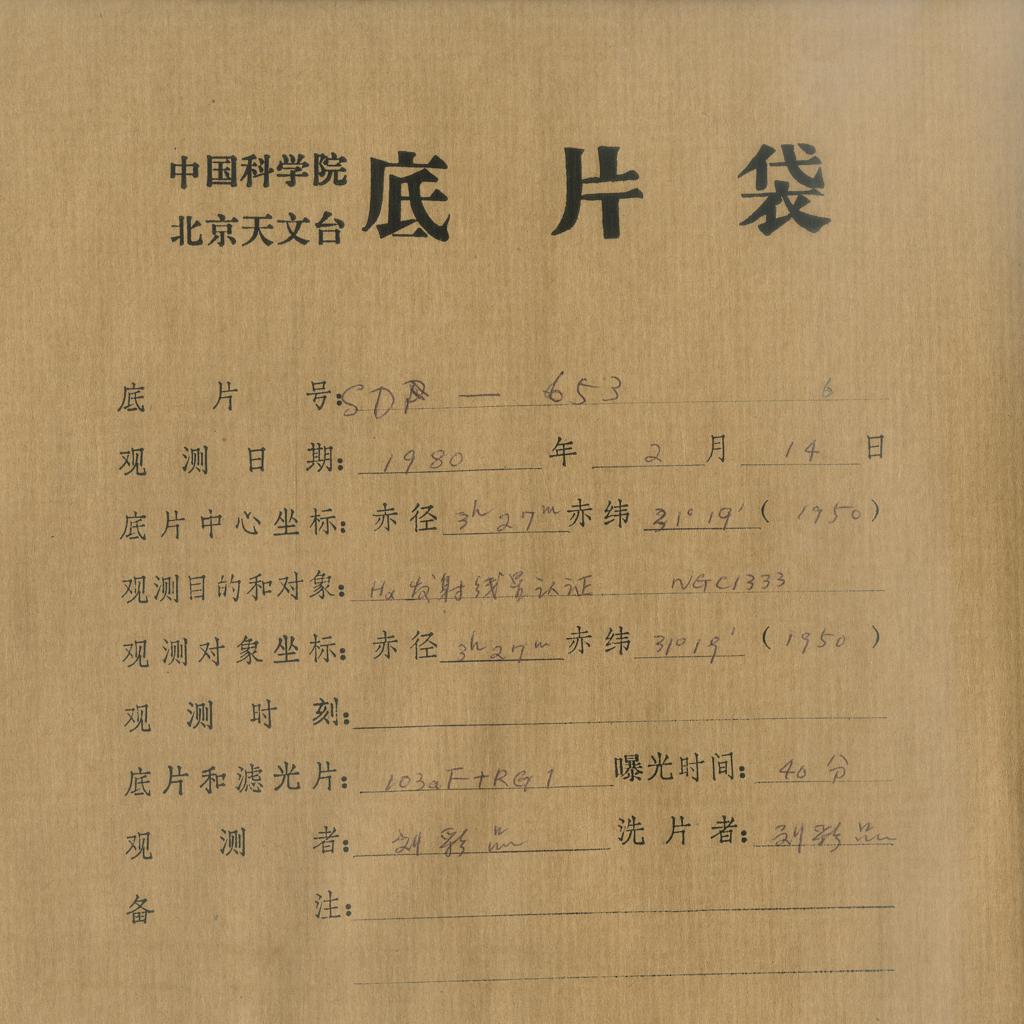 中国科学院
北京天文台
底片袋
底片号: SDP — 653 6
观测日期: 1980 年 2 月 14 日
底片中心坐标: 赤径 3h 27m 赤纬 31° 19′ (1950)
观测目的和对象: Hα 发射线星认证 NGC1333
观测对象坐标: 赤径 3h 27m 赤纬 31° 19′ (1950)
观测时刻:
底片和滤光片: 103aF+RG1 曝光时间: 40 分
观测者: 刘彩品 洗片者: 刘彩品
备注: